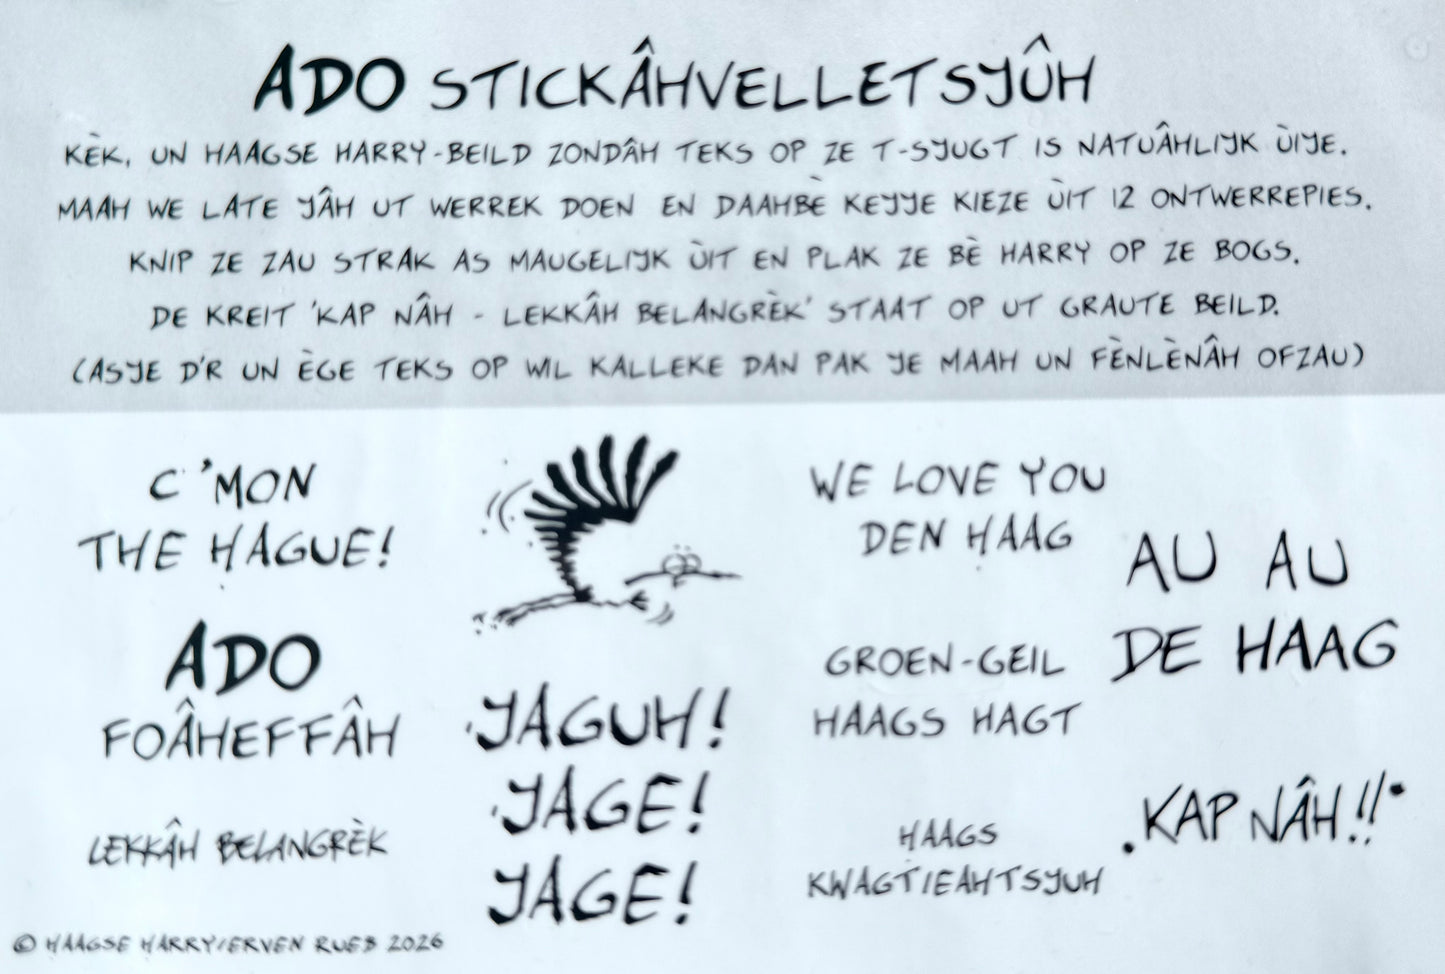 ADO STICKÂHVELLETSJÛH
KÈK, UN HAAGSE HARRY-BEILD ZONDÂH TEKS OP ZE T-SJUGT IS NATUÂHLIJK ÙIJE.
MAAH WE LATE JÂH UT WERREK DOEN EN DAAHBÈ KEJJE KIEZE ÙIT 12 ONTWERREPIES.
KNIP ZE ZAU STRAK AS MAUGELIJK ÙIT EN PLAK ZE BÈ HARRY OP ZE BOGS.
DE KREIT 'KAP NÂH - LEKKÂH BELANGRÈK' STAAT OP UT GRAUTE BEILD.
(ASJE D'R UN ÈGE TEKS OP WIL KALLEKE DAN PAK JE MAAH UN FÈNLÈNÂH OFZAU)
C'MON
THE HAGUE!
ADO
FOÂHEFFÂH
LEKKÂH BELANGRÈK
JAGUH!
JAGE!
JAGE!
WE LOVE YOU
DEN HAAG
GROEN-GEIL
HAAGS HAGT
HAAGS
KWAGTIEAHTSJUH
AU AU
DE HAAG
KAP NÂH!!
© HAAGSE HARRY/ERVEN RUEB 2026